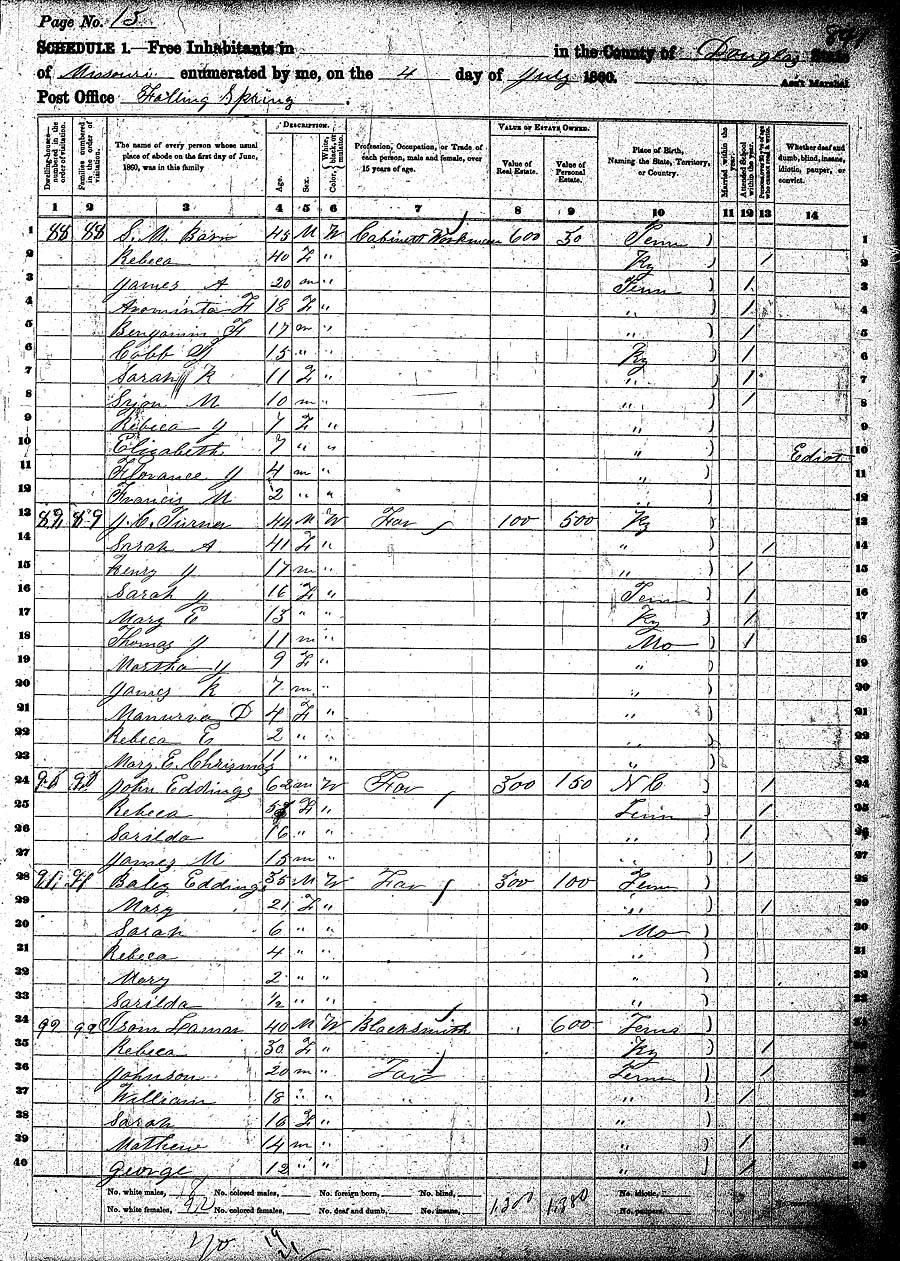 Page No. 15
841
SCHEDULE 1.—Free Inhabitants in in the County of Douglas State
of Missouri enumerated by me, on the 4 day of July 1860. Ass't Marshal
Post Office Falling Spring
Dwelling-houses numbered in the order of visitation. Families numbered in the order of visitation. The name of every person whose usual place of abode on the first day of June, 1860, was in this family DESCRIPTION. Age. Sex. Color, White, black, or mulatto. Profession, Occupation, or Trade of each person, male and female, over 15 years of age. VALUE OF ESTATE OWNED. Value of Real Estate. Value of Personal Estate. Place of Birth, Naming the State, Territory, or Country. Married within the year. Attended School within the year. Whether deaf and dumb, blind, insane, idiotic, pauper, or convict.
1 2 3 4 5 6 7 8 9 10 11 12 13 14
1 88 88 S. M. 45 M W Cabinett Workman 600 50 Tenn 1
2 Rebeca 40 F " Ky / 2
3 James A 20 m " Tenn / 3
4 Arominta F 18 F " " / 4
5 Benjamin F 17 m " " / 5
6 Cobb 15 " " Ky / 6
7 Sarah K 11 F " " / 7
8 M 10 m " " / 8
9 Rebeca J 7 F " " 9
10 Elizabeth 7 " " " Ediot 10
11 Florance J 4 m " " 11
12 Francis M 2 " " " 12
13 89 89 J. C. Turner 44 M W Far 100 500 Ky 13
14 Sarah A 41 F " " / 14
15 Henry J 17 m " " / 15
16 Sarah J 16 F " Tenn / 16
17 Mary E 13 " " Ky / 17
18 Thomas J 11 m " Mo / 18
19 Martha J 9 F " " 19
20 James K 7 m " " 20
21 Manurva D 4 F " " 21
22 Rebeca E 2 " " " 22
23 Mary E. Chrismas 11 " " " 23
24 90 90 John Eddings 62 m W Far 300 150 N C / 24
25 Rebeca F " Tenn / 25
26 Sarilda 16 " " " / 26
27 James M 15 m " " / 27
28 91 91 Baley Eddings 35 M W Far 300 100 Tenn 28
29 Mary 21 F " " / 29
30 Sarah 6 " " Mo 30
31 Rebeca 4 " " " 31
32 Mary 2 " " " 32
33 Sarilda ½ " " " 33
34 92 92 Isom Lamar 40 M W Blacksmith 600 Tenn 34
35 Rebeca 30 F " Ky / 35
36 Johnson 20 m " Far Tenn / 36
37 William 18 " " " " / 37
38 Sarah 16 F " " 38
39 Mathew 14 m " " / 39
40 George 12 " " " / 40
No. white males, No. colored males, No. foreign born, No. blind, 1,300 1,380 No. idiotic,
No. white females, 22 No. colored females, No. deaf and dumb, No. insane, No. paupers,
40 19
21